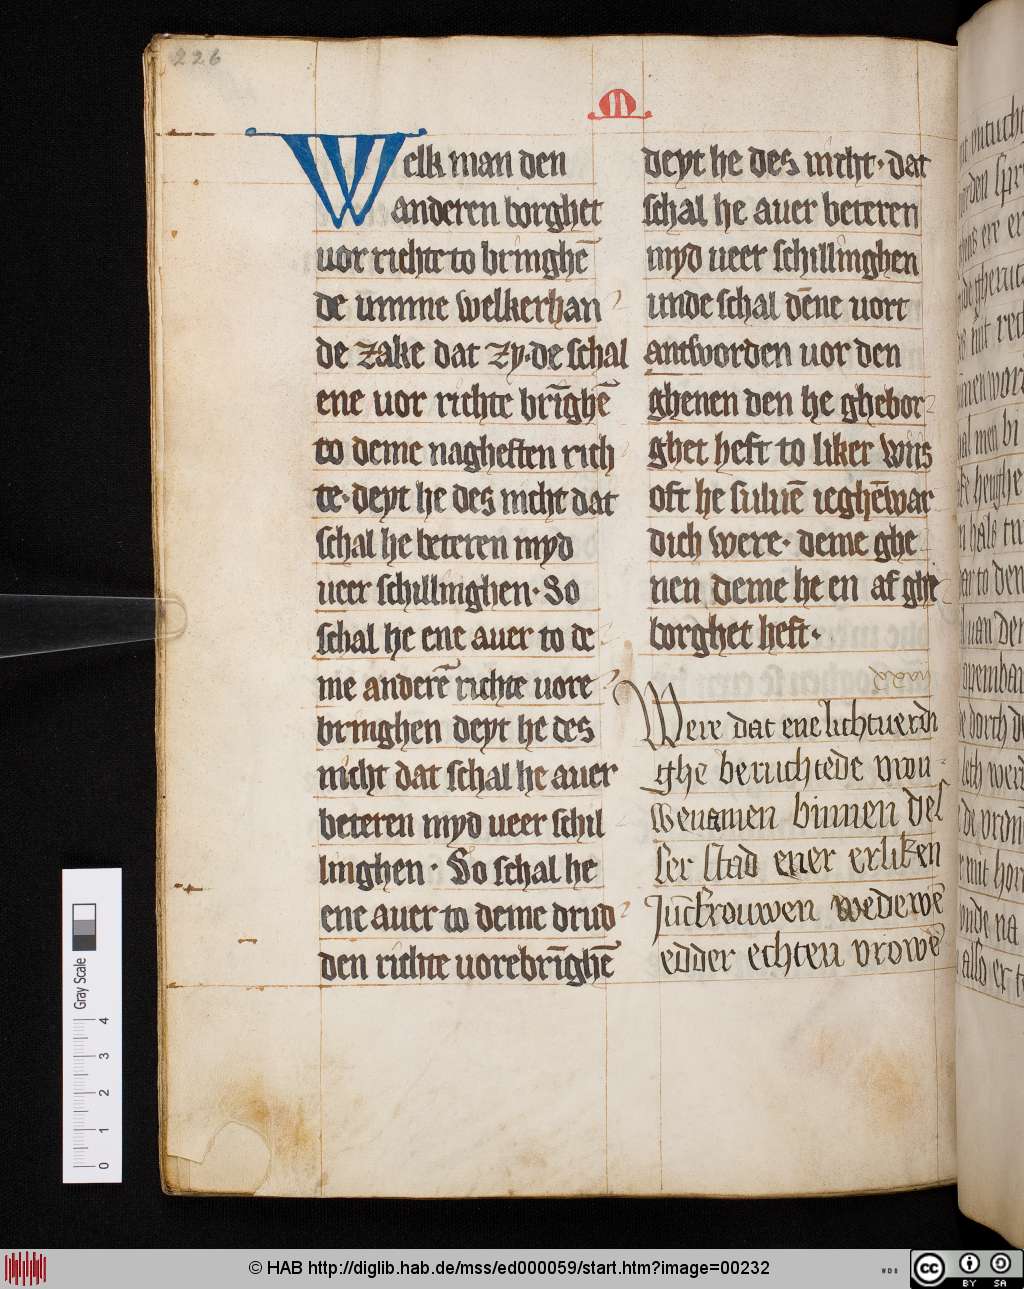 226
M
Welk man den
anderen borghet
uor richte to bringhē
de umme welkerhan
de zake dat zy·de schal
ene uor richte brīghē
to deme naghesten rich
te·deyt he des nicht dat
schal he beteren myd
ueer schillinghen·So
schal he ene auer to de
me anderē richte uore
bringhen deyt he des
nicht dat schal he auer
beteren myd ueer schil
linghen·So schal he
ene auer to deme drud
den richte uorebrīghē
deyt he des nicht·dat
schal he auer beteren
myd ueer schillinghen
unde schal dēne uort
antworden uor den
ghenen den he ghebor
ghet heft to liker wiis
oft he suluē ieghēwar
dich were·deme ghe
nen deme he en af ghe
borghet heft·
Were dat ene lichtuerdi
ghe beruchtede vrou
wensmen binnen des
ser stad ener erliken
Jūcfrouwen wedewē
edder echten vrowē
Gray Scale
4
3
2
1
0
© HAB http://diglib.hab.de/mss/ed000059/start.htm?image=00232
WDB
cc
BY SA